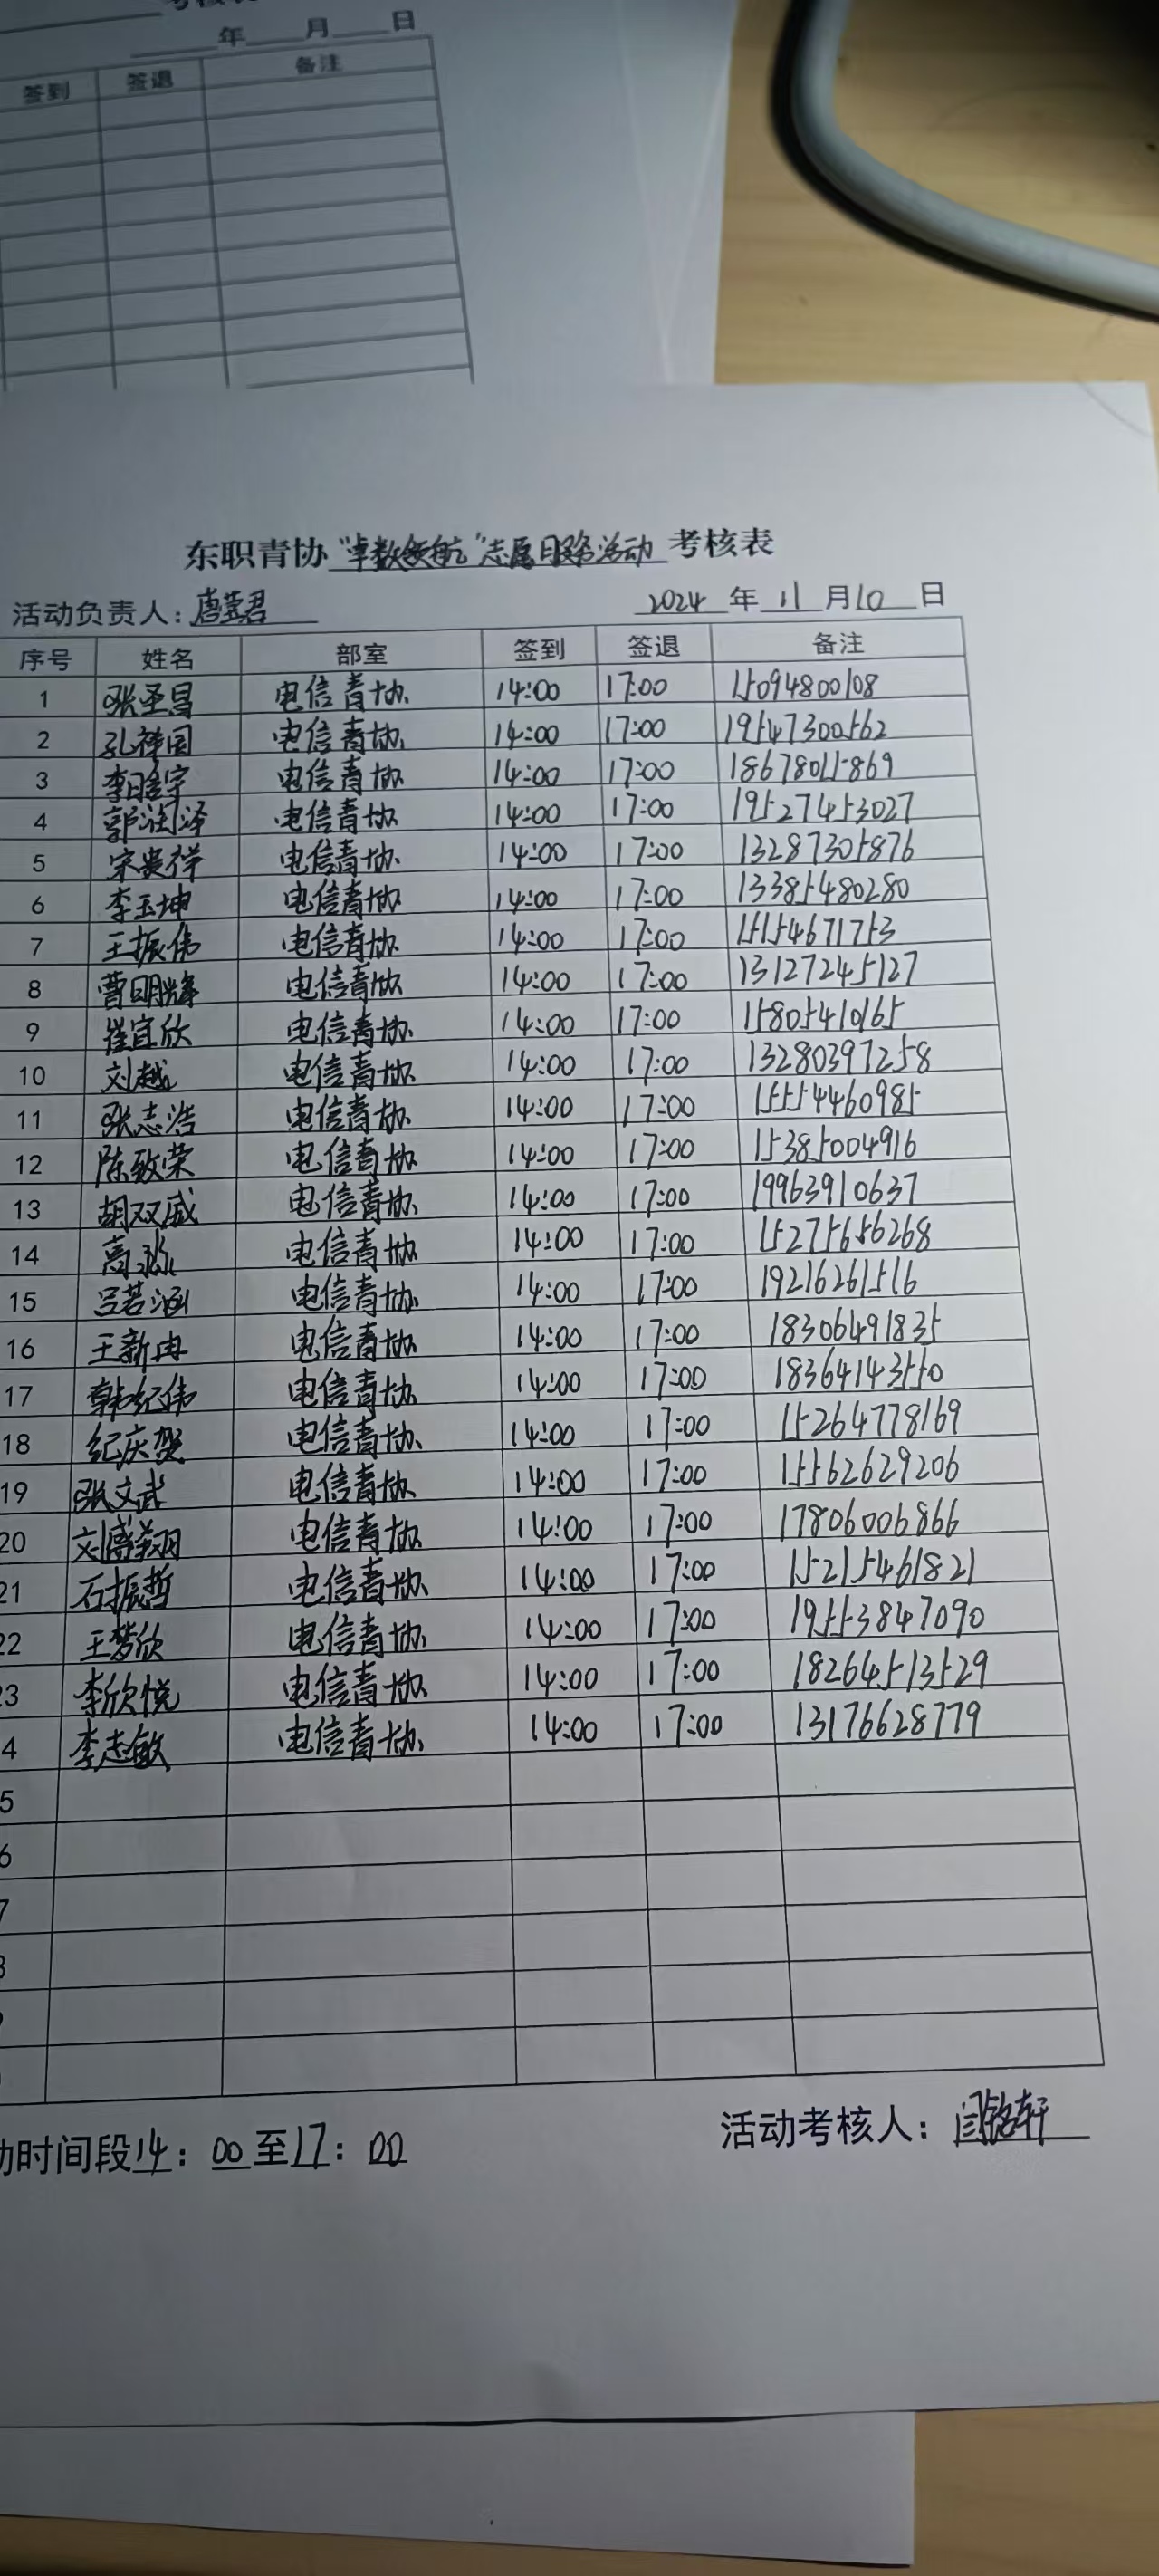 年 月 日
签到 签退 备注
东职青协"卓数领航"志愿服务活动 考核表
活动负责人:唐莹君 2024 年 11 月 10 日
序号 姓名 部室 签到 签退 备注
1 张圣昌 电信青协 14:00 17:00 15094800108
2 孔祥国 电信青协 14:00 17:00 19547300562
3 李晗宇 电信青协 14:00 17:00 18678015869
4 郭润泽 电信青协 14:00 17:00 19527453027
5 宋贵祥 电信青协 14:00 17:00 13287305876
6 李玉坤 电信青协 14:00 17:00 13385480280
7 王振伟 电信青协 14:00 17:00 15154671753
8 曹明辉 电信青协 14:00 17:00 13127245127
9 崔宜欣 电信青协 14:00 17:00 15805410165
10 刘越 电信青协 14:00 17:00 13280397258
11 张志浩 电信青协 14:00 17:00 15554460985
12 陈致荣 电信青协 14:00 17:00 15385004916
13 胡双威 电信青协 14:00 17:00 19963910637
14 高 电信青协 14:00 17:00 15275656268
15 吕若涵 电信青协 14:00 17:00 19216261516
16 王新冉 电信青协 14:00 17:00 18306491835
17 韩纪伟 电信青协 14:00 17:00 18364143550
18 纪庆贺 电信青协 14:00 17:00 15264778169
19 张文武 电信青协 14:00 17:00 15562629206
20 刘博翔 电信青协 14:00 17:00 17806006866
21 石振哲 电信青协 14:00 17:00 15215461821
22 王梦欣 电信青协 14:00 17:00 19553847090
23 李欣悦 电信青协 14:00 17:00 18264513529
4 李志敏 电信青协 14:00 17:00 13176628779
5
6
7
动时间段14:00至17:00 活动考核人:闫铭轩